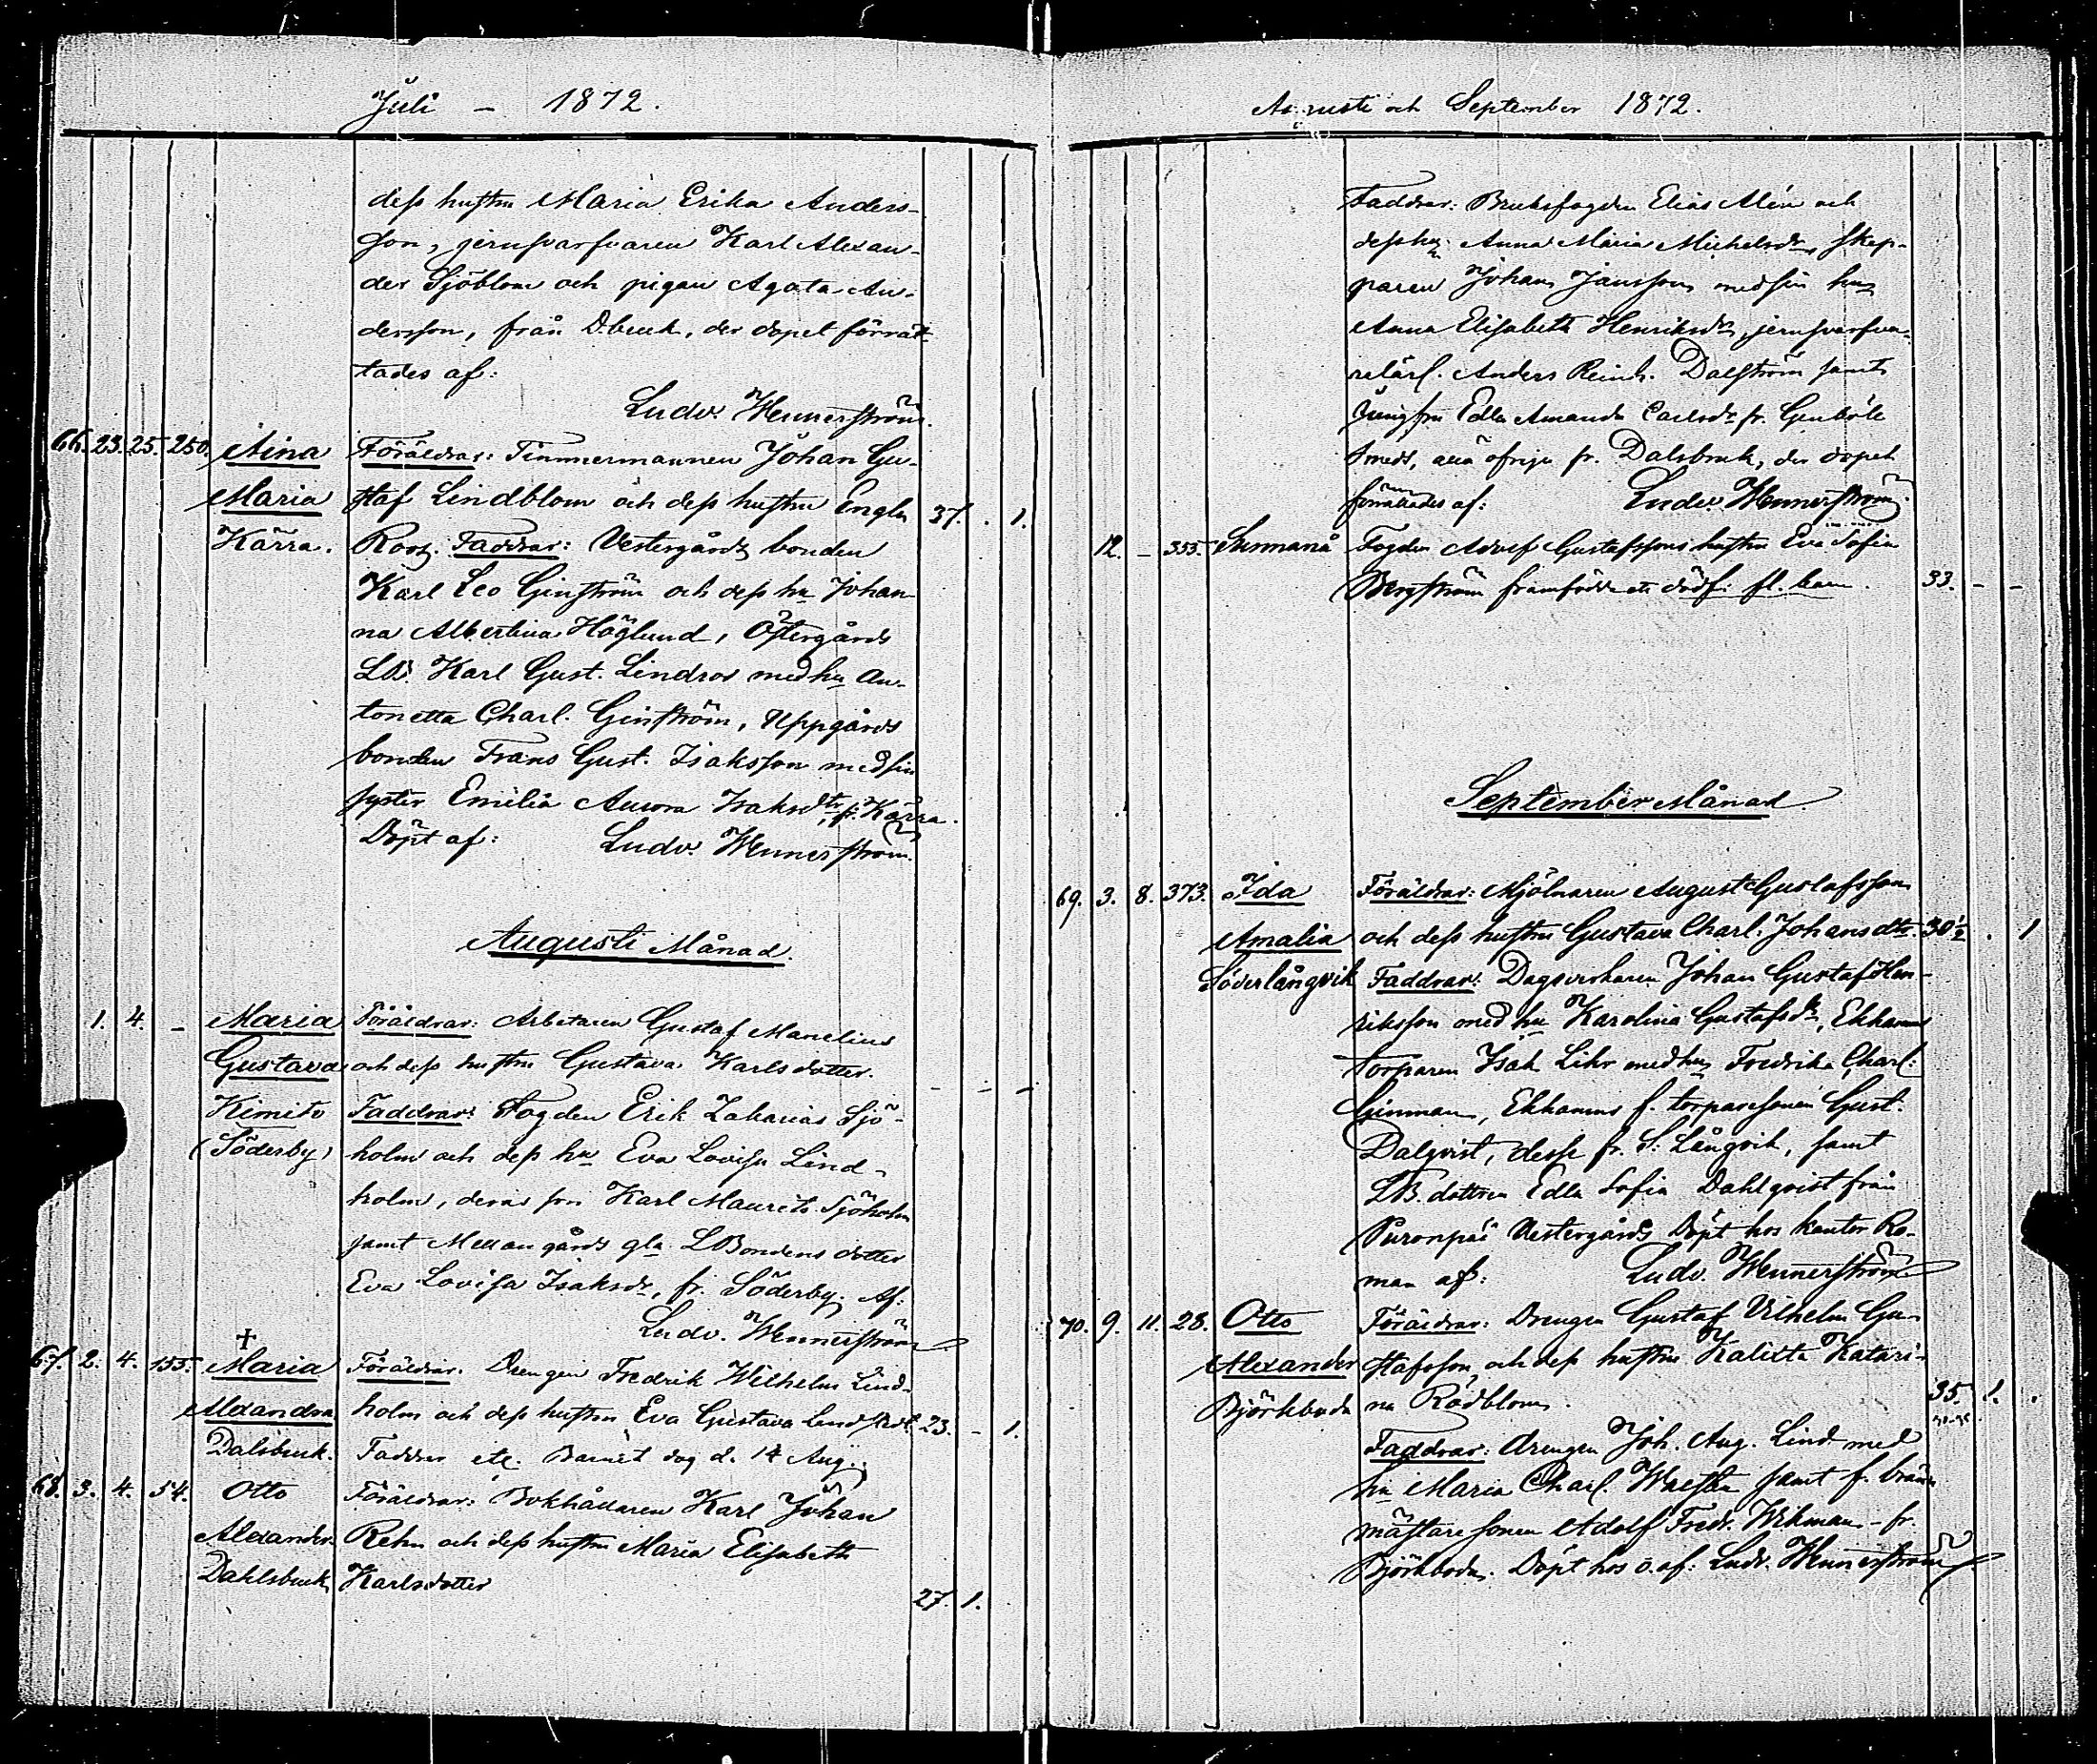 Juli - 1872.
dess hustru Maria Erika Anders-
son, jernsvarfvaren Karl Alexan-
der Sjöblom och pigan Agata An-
dersson, från D.bruk, der dopet förrät-
tades af:
Ludv. Wennerström.
66. 23. 25. 250. Aina Föräldrar: Timmermannen Johan Gu-
Maria staf Lindblom och dess hustru Engla 37. . 1.
Kärra. Roos. Faddrar: Vestergårds bonden
Karl Leo Ginström och dess hu Johan-
na Albertina Höglund, Östergårds
LB. Karl Gust. Lindros med hu An-
tonetta Charl. Ginström, Uppgårds
bonden Frans Gust. Isaksson med sin
syster Emilia Aurora Isaksdtr, fr. Kärra.
Döpt af: Ludv. Wennerström.
Augusti Månad.
1. 4. - Maria Föräldrar: Arbetaren Gustaf Manelius
Gustava och dess hustru Gustava Karlsdotter. - - -
Kimito Faddrar: Fogden Erik Zakarias Sjö-
(Söderby) holm och dess hu Eva Lovisa Lind-
holm, deras son Karl Maurits Sjöholm
samt Mellangårds gla LBondens dotter
Eva Lovisa Isaksdr, fr. Söderby. Af:
Ludv. Wennerström
67. 2. 4. 155. Maria Föräldrar. Drengen Fredrik Wilhelm Lind-
Alexandra holm och dess hustru Eva Gustava 23. - 1.
Dalsbruk. Faddrar etc. Barnet dog d. 14 Aug.
68. 3. 4. 54. Otto Föräldrar: Bokhållaren Karl Johan
Alexander. Rehn och dess hustru Maria Elisabeth
Dahlsbruk Karlsdotter
27. 1.
Augusti och September 1872.
Faddrar: Bruksfogden Elias Alén och
dess hu: Anna Maria Michelsdr, skep-
paren Johan Jansson med sin hu
Anna Elisabeth Henriksdr, jernsvarfva-
relärl. Anders Reinh. Dalström samt
Jungfru Edla Amanda Carlsdr fr. Genböle
smeds, alla öfriga fr. Dalsbruk, der dopet
förrättades af: Ludv. Wennerström.
12. - 355. Sunnanå Fogden Adolf Gustafssons hustru Eva Sofia
Bergström framfödde ett dödf. fl. barn. 33. - -
September Månad
69. 3. 8. 373. Ida Föräldrar: Mjölnaren August Gustafsson
Amalia och dess hustru Gustava Charl. Johansdtr. 30½ . 1
Söderlångvik Faddrar: Dagsverkaren Johan Gustaf Hen-
riksson med hu Karolina Gustafsdr, Ekhamns
torparen Isak Lihr med hu Fredrika Charl.
Ginman, Ekhamns f. torparesonen Gust.
Dalqvist, desse fr. S. Långvik, samt
LB. dottren Edla Sofia Dahlqvist från
Puronpää Vestergårds Döpt hos kantor Ro-
man af: Ludv. Wennerström
70. 9. 11. 28. Otto Föräldrar: Drengen Gustaf Vilhelm Gu-
Alexander stafsson och dess hustru Kalixta Katari-
Björkboda na Rödblom. 35. 1. .
Faddrar: drengen Joh. Aug. Lind med
hu Maria Charl. samt f. bränn-
mästaresonen Adolf Fredr. Wikman - fr.
Björkboda. Döpt hos o. af: Ludv. Wennerström